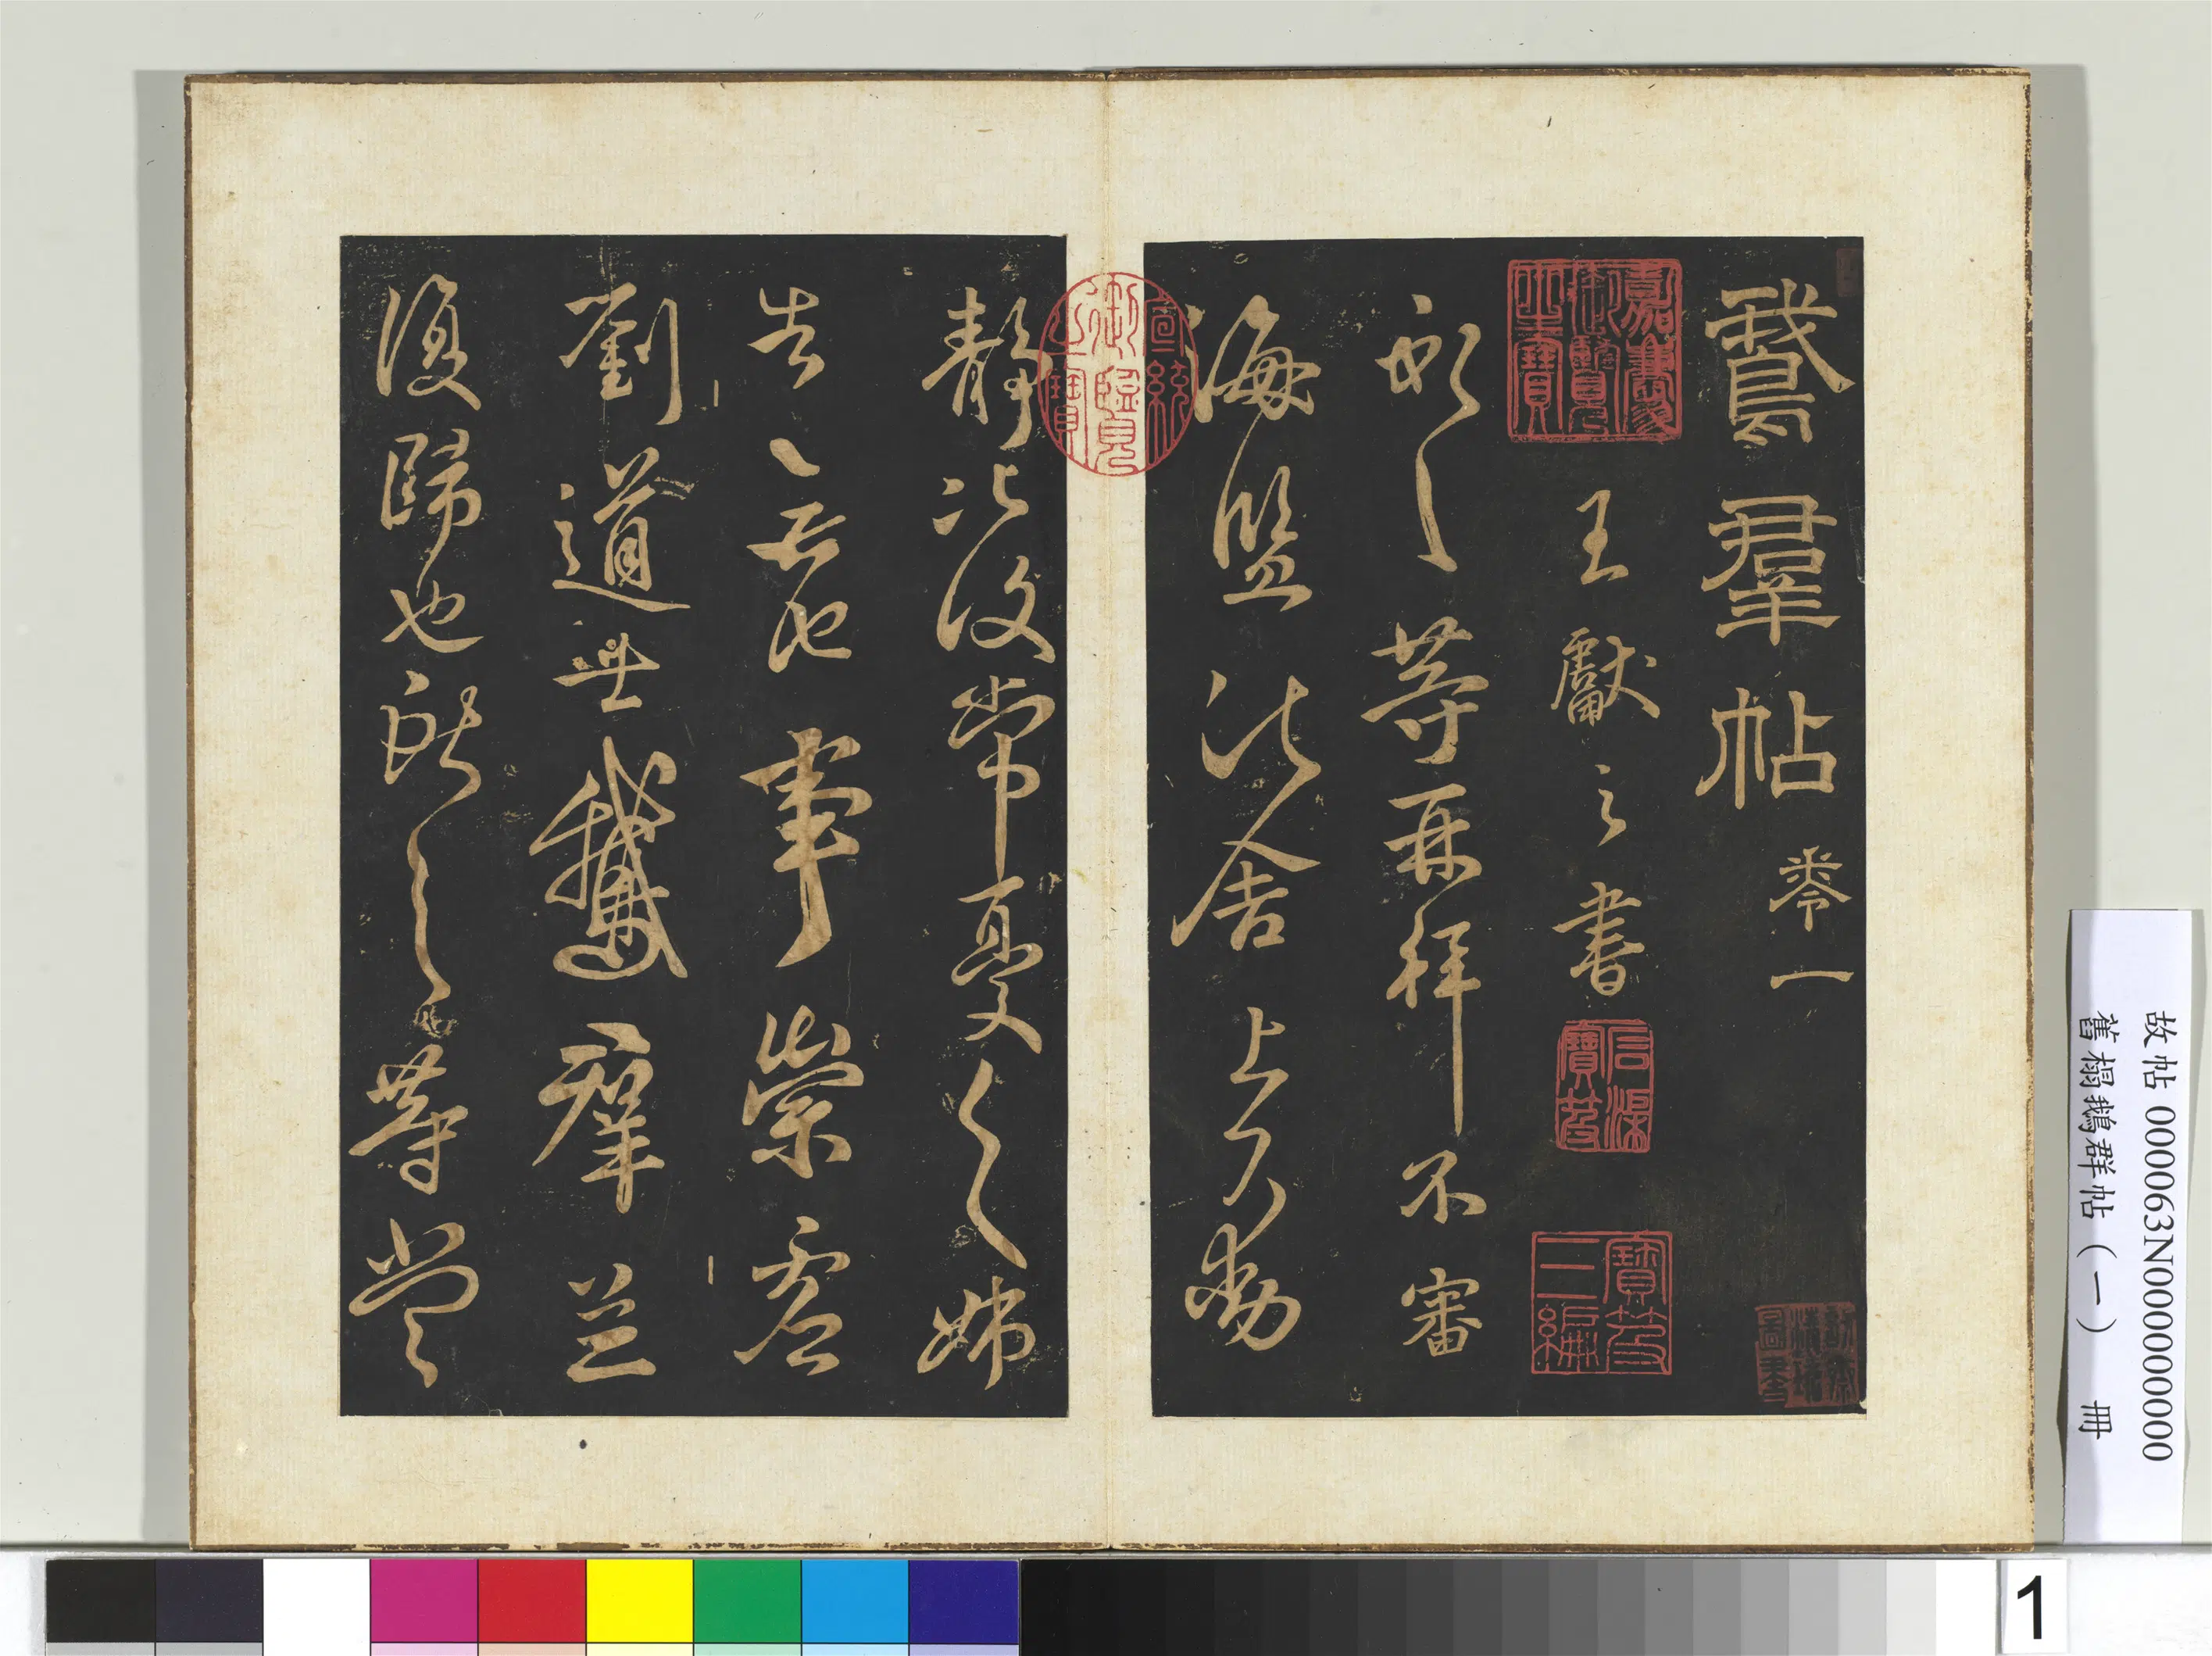 鵞羣帖 卷一
王獻之書
獻之等再拜不審
海鹽諸舍上下動
靜比復常憂之姊
告無他事崇虛
劉道士鵞羣並
復歸也獻之等當
嘉慶御覽之寶
石渠寶笈
寶笈三編
宣統御覽之寶
故帖 000063N000000000
舊榻鵝群帖(一) 冊
1